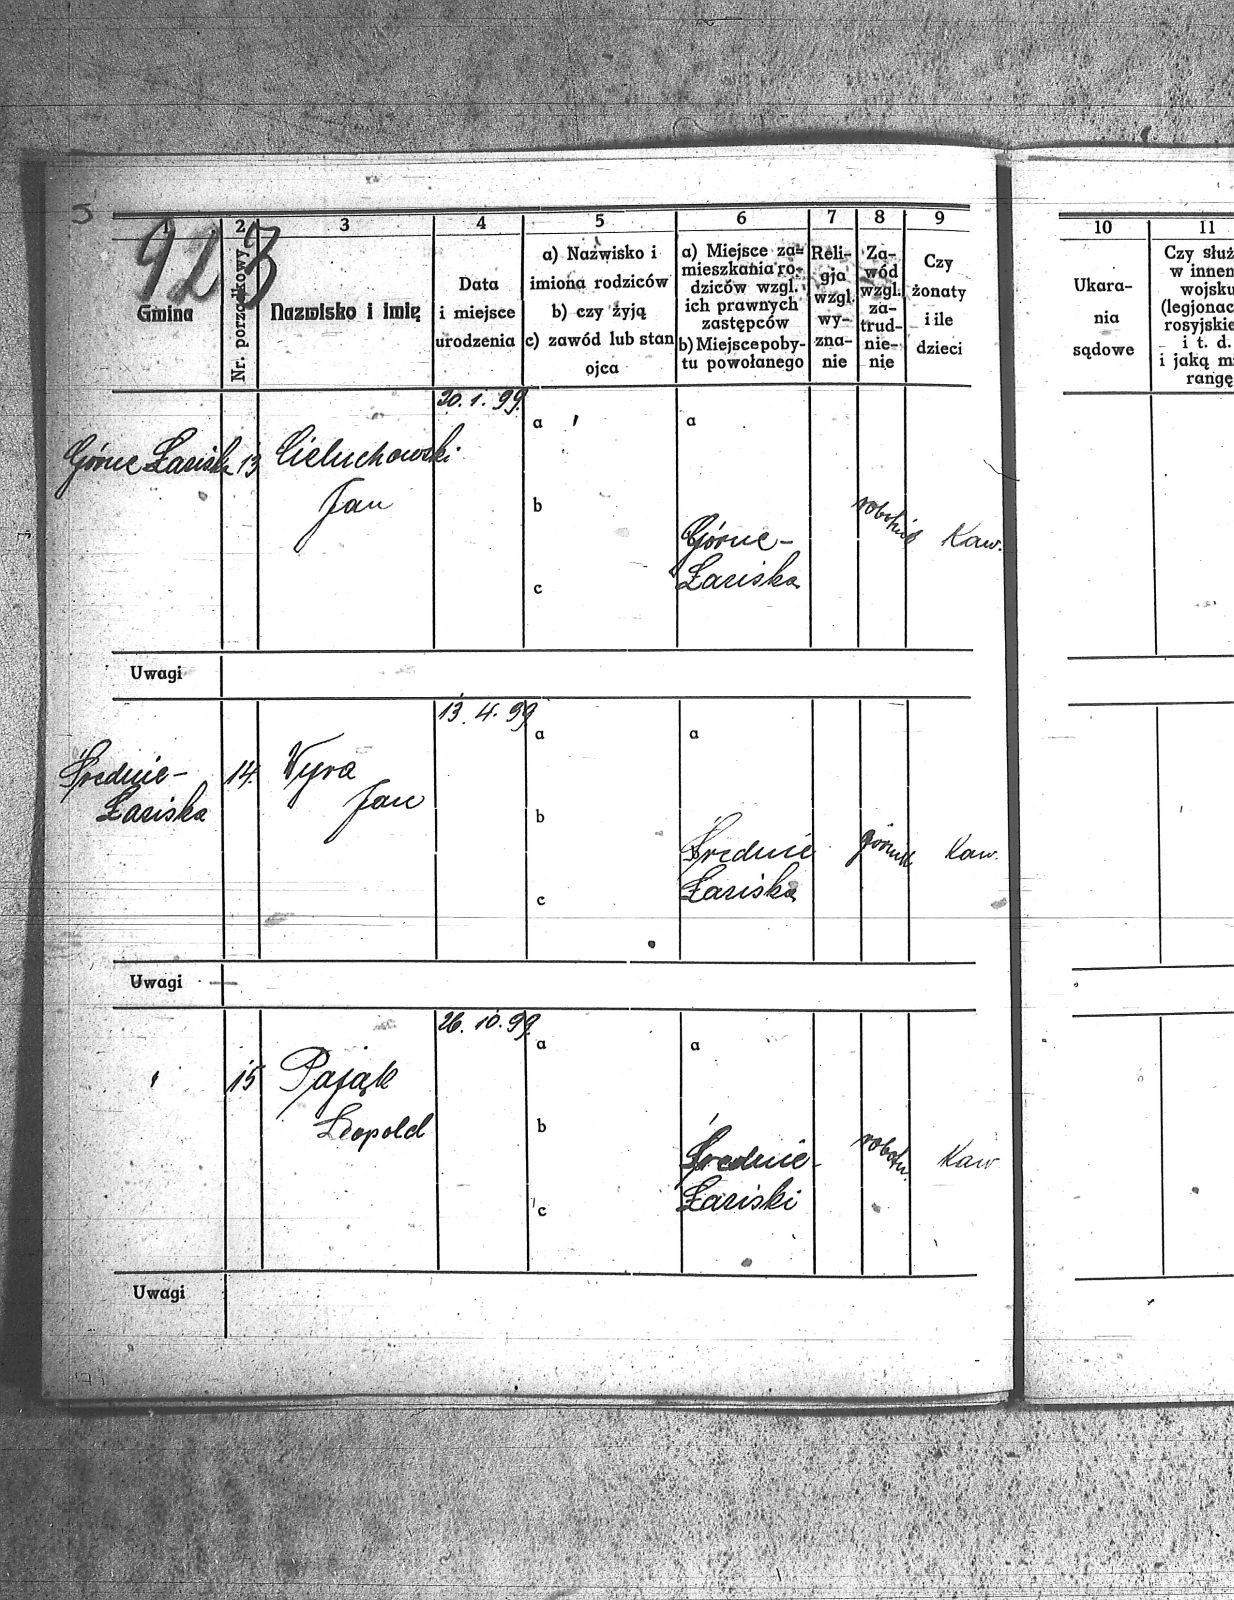 923
1
2
3
4
5
6
7
8
9
10
11
Gmina
Nr. porządkowy
Nazwisko i imię
Data
i miejsce
urodzenia
a) Nazwisko i
imiona rodziców
b) czy żyją
c) zawód lub stan
ojca
a) Miejsce za-
mieszkania ro-
dziców wzgl.
ich prawnych
zastępców
b) Miejsce poby-
tu powołanego
Reli-
gja
wzgl.
wy-
zna-
nie
Za-
wód
wzgl.
za-
trud-
nie-
nie
Czy
żonaty
i ile
dzieci
Ukara-
nia
sądowe
Czy służ
w innem
wojsku
(legjonac
rosyjskie
i t. d.
i jaką mi
rangę
Górne Łaziska
13
Cieluchowski
Jan
20. 1. 99.
a
b
c
a
Górne-
Łaziska
robotnik
Kaw.
Uwagi
Średnie-
Łaziska
14.
Vyra
Jan
13. 4. 99
a
b
c
a
Średnie
Łaziska
górnik
Kaw.
Uwagi
"
15
Pająk
Leopold
26. 10. 99.
a
b
c
a
Średnie-
Łaziski
robotn.
Kaw
Uwagi